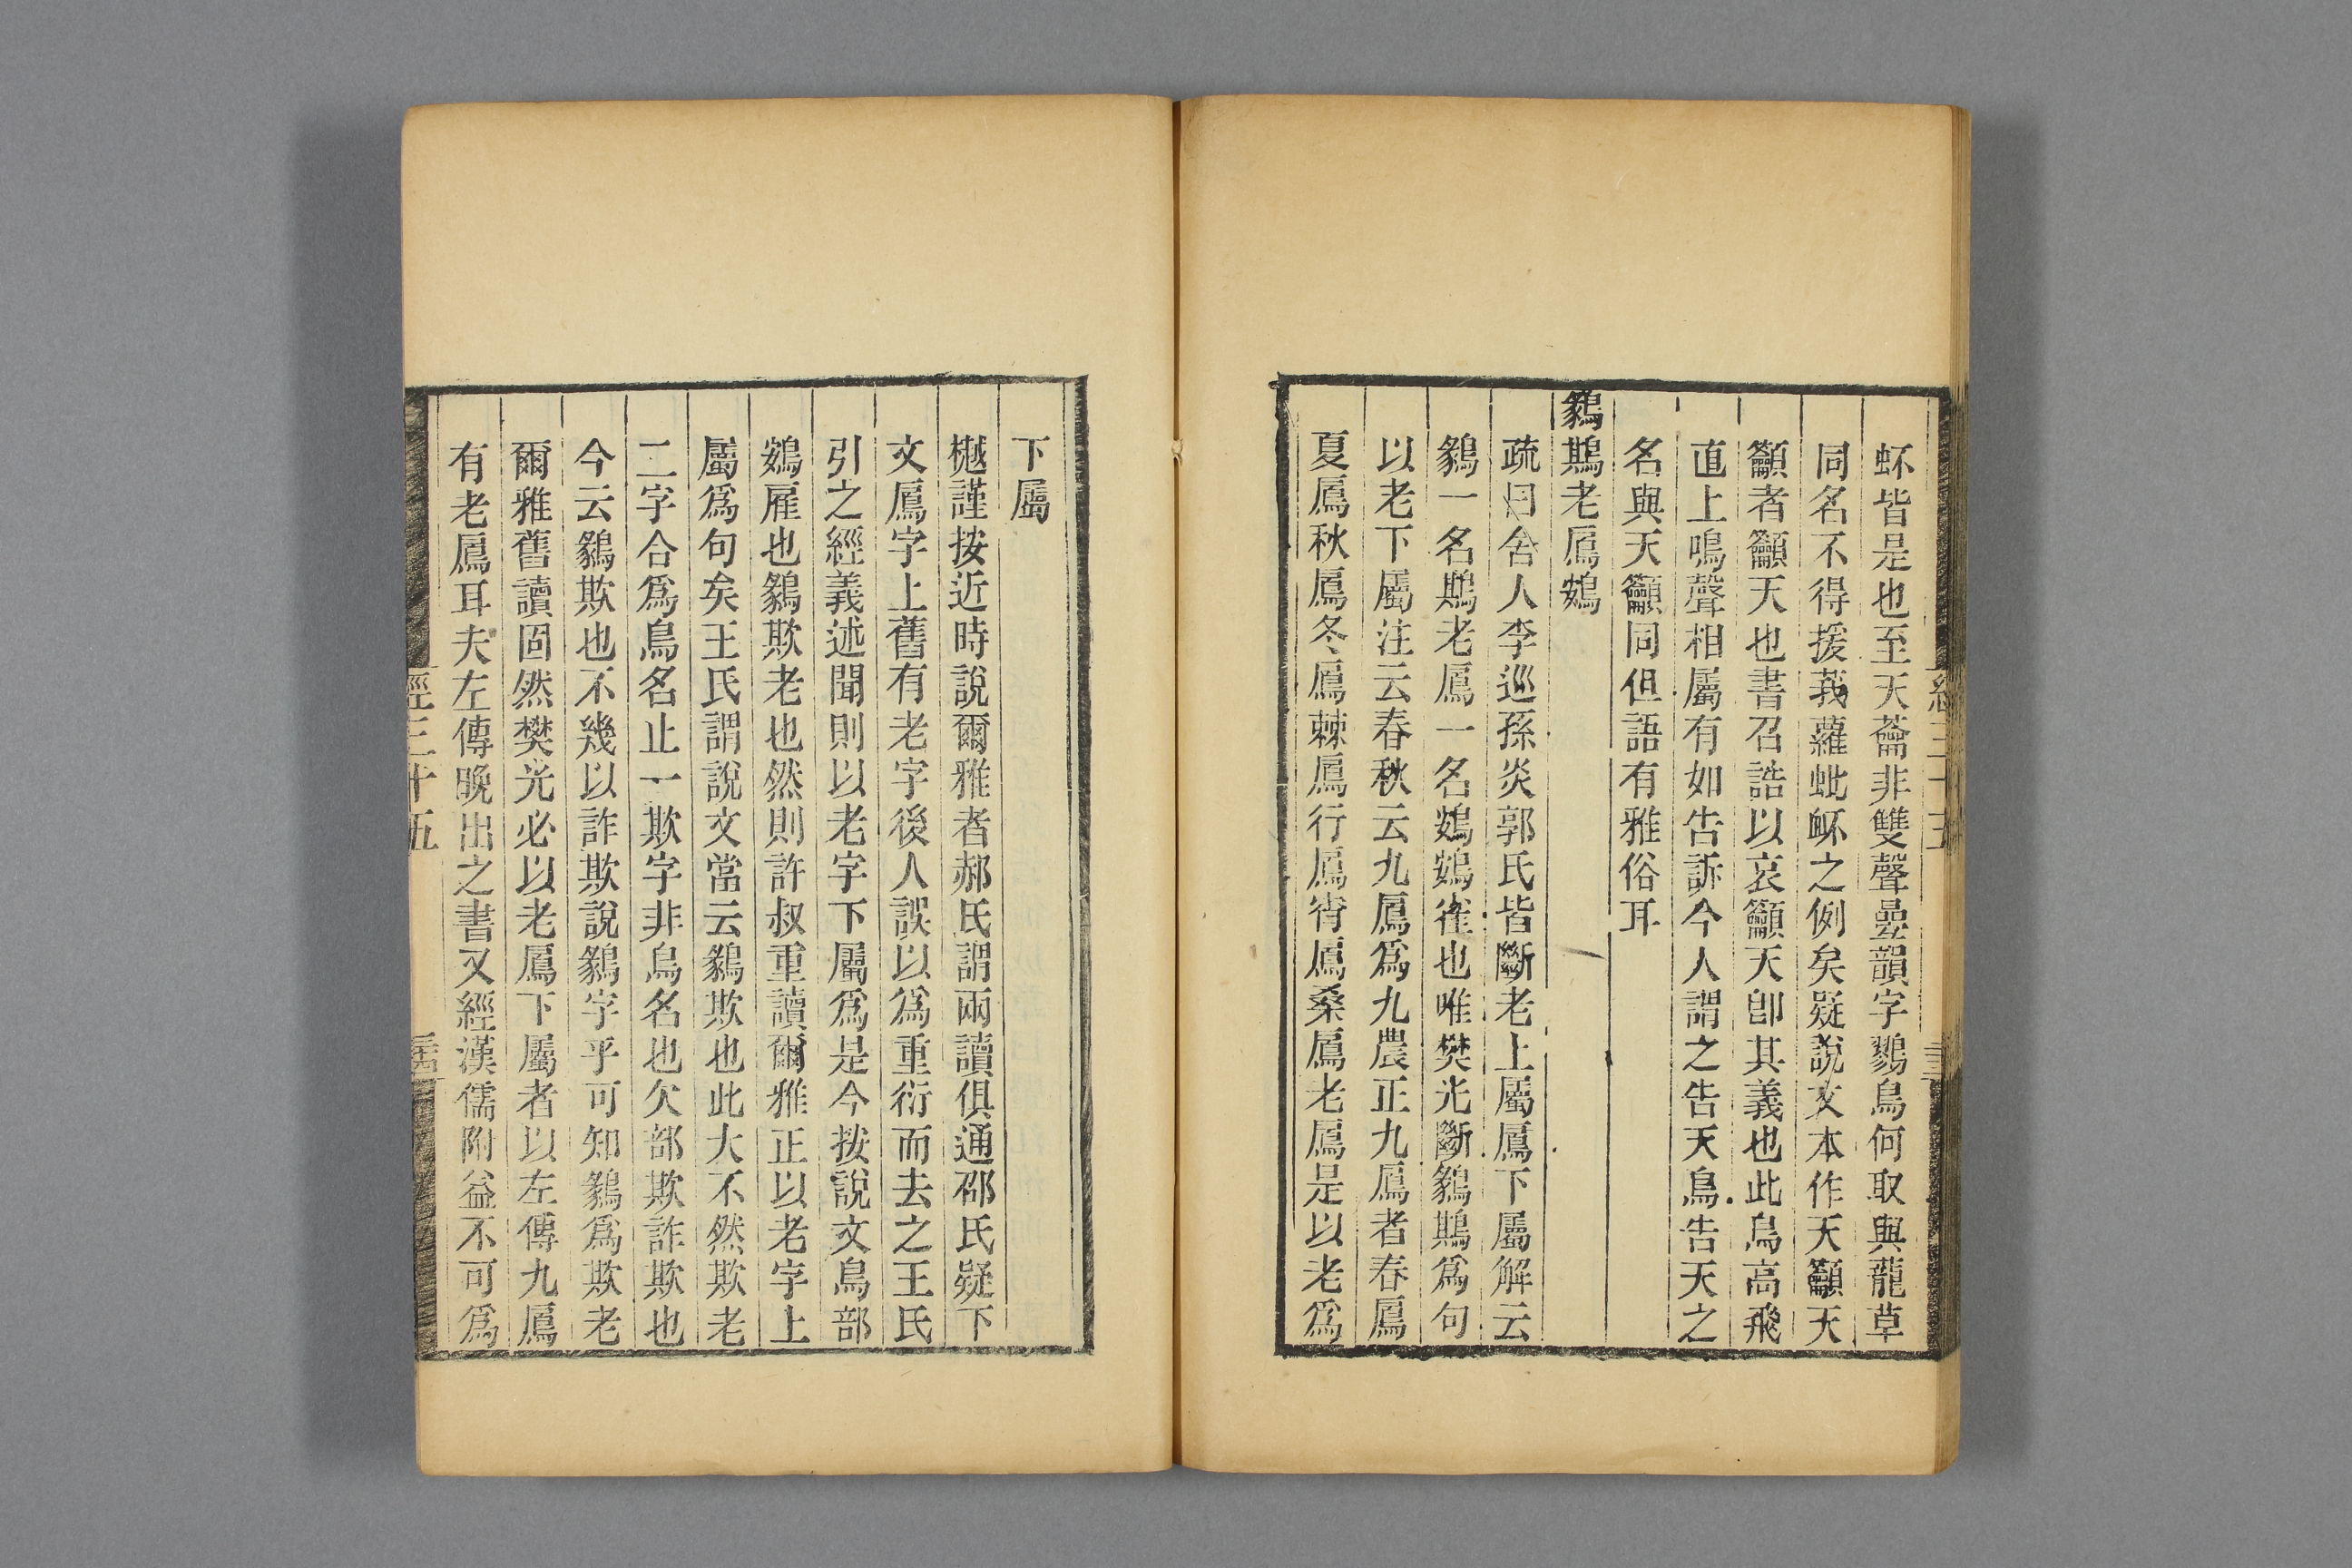 蚽皆是也至天蘥非雙聲曡韻字鷚鳥何取與龍草
同名不得援莪蘿蚍衃之例矣疑說文本作天籲天
籲者籲天也書召誥以哀籲天卽其義也此鳥高飛
直上鳴聲相屬有如告訴今人謂之告天鳥告天之
名與天籲同但語有雅俗耳
鶨鶀老鳸鷃
疏曰舍人李巡孫炎郭氏皆斷老上屬鳸下屬解云
鶨一名鶀老鳸一名鷃鷃雀也唯樊光斷鶨鶀爲句
以老下屬注云春秋云九鳸爲九農正九鳸者春鳸
夏鳸秋鳸冬鳸棘鳸行鳸宵鳸桑鳸老鳸是以老爲
下屬
樾謹按近時說爾雅者郝氏謂兩讀俱通邵氏疑下
文鳸字上舊有老字後人誤以爲重衍而去之王氏
引之經義述聞則以老字下屬爲是今按說文鳥部
鷃雇也鶨欺老也然則許叔重讀爾雅正以老字上
屬爲句矣王氏謂說文當云鶨欺也此大不然欺老
二字合爲鳥名止一欺字非鳥名也欠部欺詐欺也
今云鶨欺也不幾以詐欺說鶨字乎可知鶨爲欺老
爾雅舊讀固然樊光必以老鳸下屬者以左傳九鳸
有老鳸耳夫左傳晚出之書又經漢儒附益不可爲
經三十五